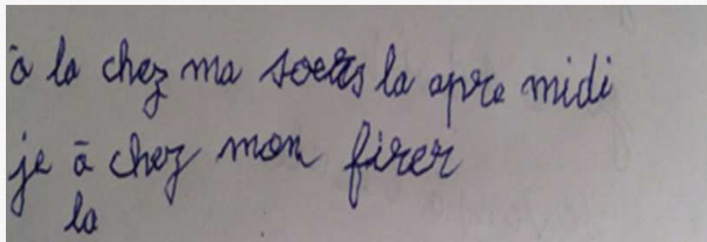 à la chez ma soeurs la apre midi
je à chez mon firer
la